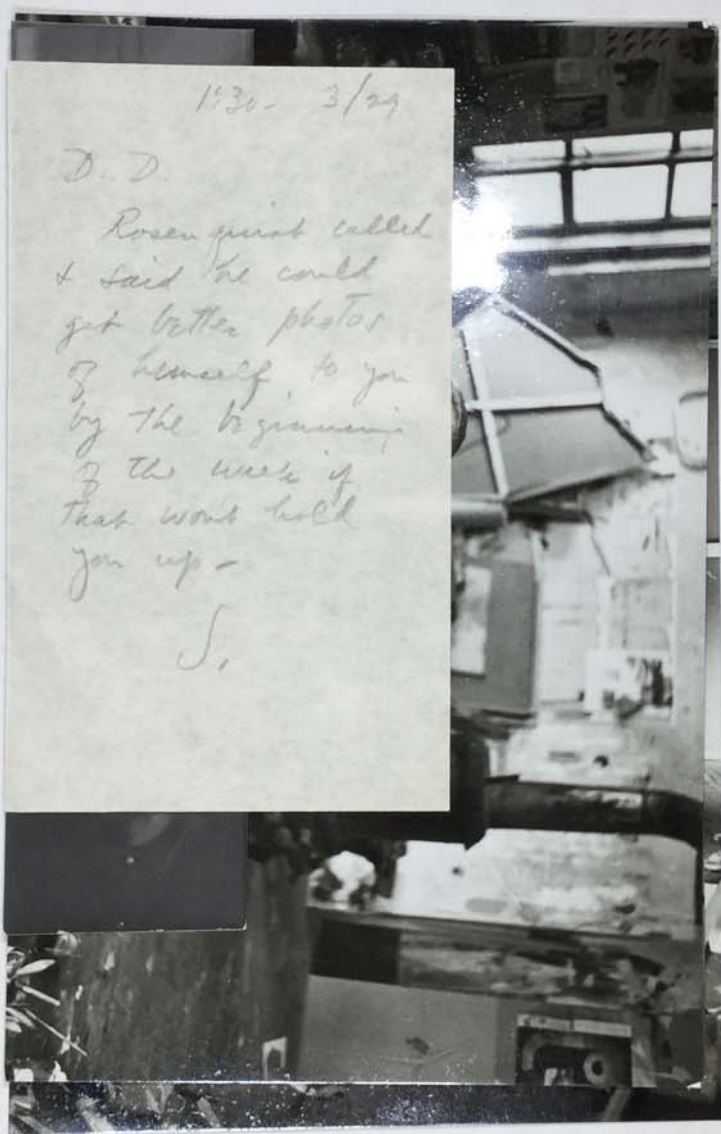 1:30 - 3/29
D. D.
Rosenquist called
& said he could
get better photos
of himself to you
by the beginning
of the week if
that wont hold
you up -
S.